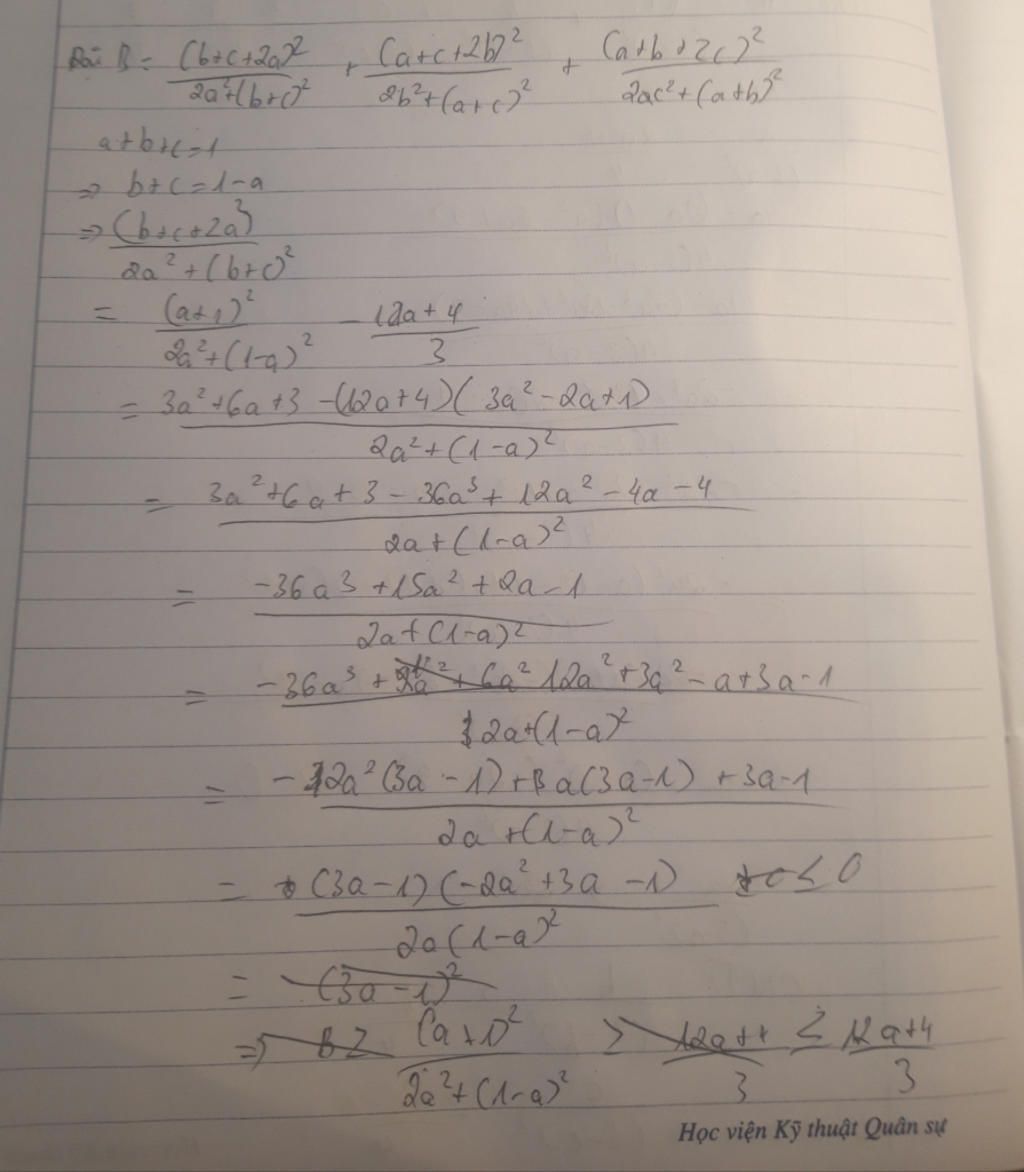 B = (b+c+2a)²/(2a²+(b+c)²) + (a+c+2b)²/(2b²+(a+c)²) + (a+b+2c)²/(2ac²+(a+b)²)
a+b+c=1
=> b+c=1-a
=> (b+c+2a)²/(2a²+(b+c)²)
= (a+1)²/(2a²+(1-a)²) - (12a+4)/3
= (3a²+6a+3-(12a+4)(3a²-2a+1))/(2a²+(1-a)²)
= (3a²+6a+3-36a³+12a²-4a-4)/(2a+(1-a)²)
= (-36a³+15a²+2a-1)/(2a+(1-a)²)
= (-36a³+12a²+3a²-a+3a-1)/(2a+(1-a)²)
= (-12a²(3a-1)+a(3a-1)+3a-1)/(2a+(1-a)²)
= (3a-1)(-2a²+3a-1)/(2a(1-a)²) ≤ 0
= (3a-1)²
=> (a+1)²/(2a²+(1-a)²) ≤ (12a+4)/3
Học viện Kỹ thuật Quân sự